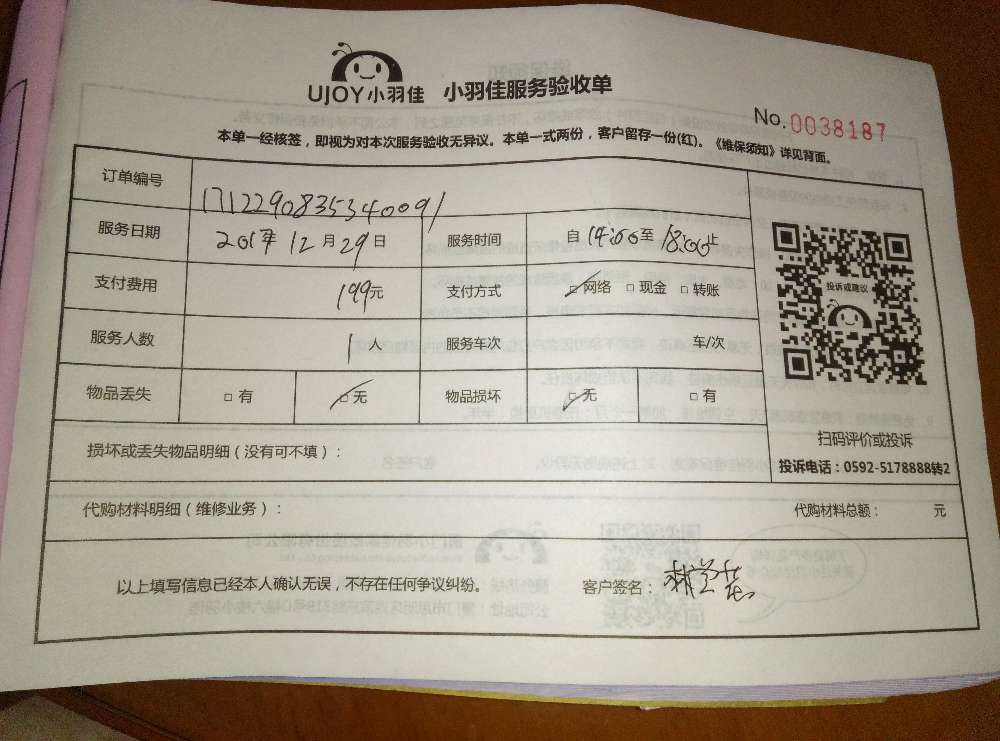 UJOY小羽佳 小羽佳服务验收单
No.0038187
本单一经核签，即视为对本次服务验收无异议。本单一式两份，客户留存一份(红)。《维保须知》详见背面。
订单编号 1712290835340091
服务日期 2017年12月29日 服务时间 自14:00至18:00止
支付费用 199元 支付方式 ☑网络 □现金 □转账
服务人数 1人 服务车次 车/次
物品丢失 □有 ☑无 物品损坏 ☑无 □有
投诉或建议
扫码评价或投诉
投诉电话：0592-5178888转2
损坏或丢失物品明细（没有可不填）：
代购材料明细（维修业务）： 代购材料总额： 元
以上填写信息已经本人确认无误，不存在任何争议纠纷。 客户签名：